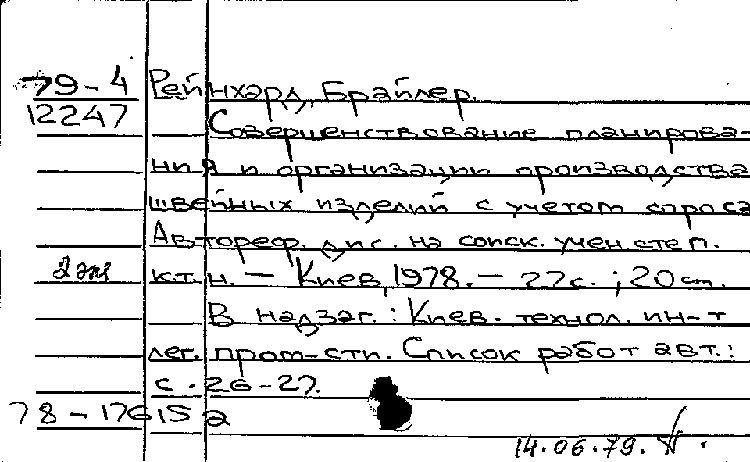 79-4 Рейнхард, Брайлер.
12247 Совершенствование планирова-
ния и организации производства
швейных изделий с учетом спроса
Автореф. дис. на соиск. учен. степ.
2 экз к.т.н. — Киев, 1978. — 27 с. ; 20 см.
В надзаг.: Киев. технол. ин-т
лег. пром-сти. Список работ авт.:
с. 26-27.
78-17615а
14.06.79.